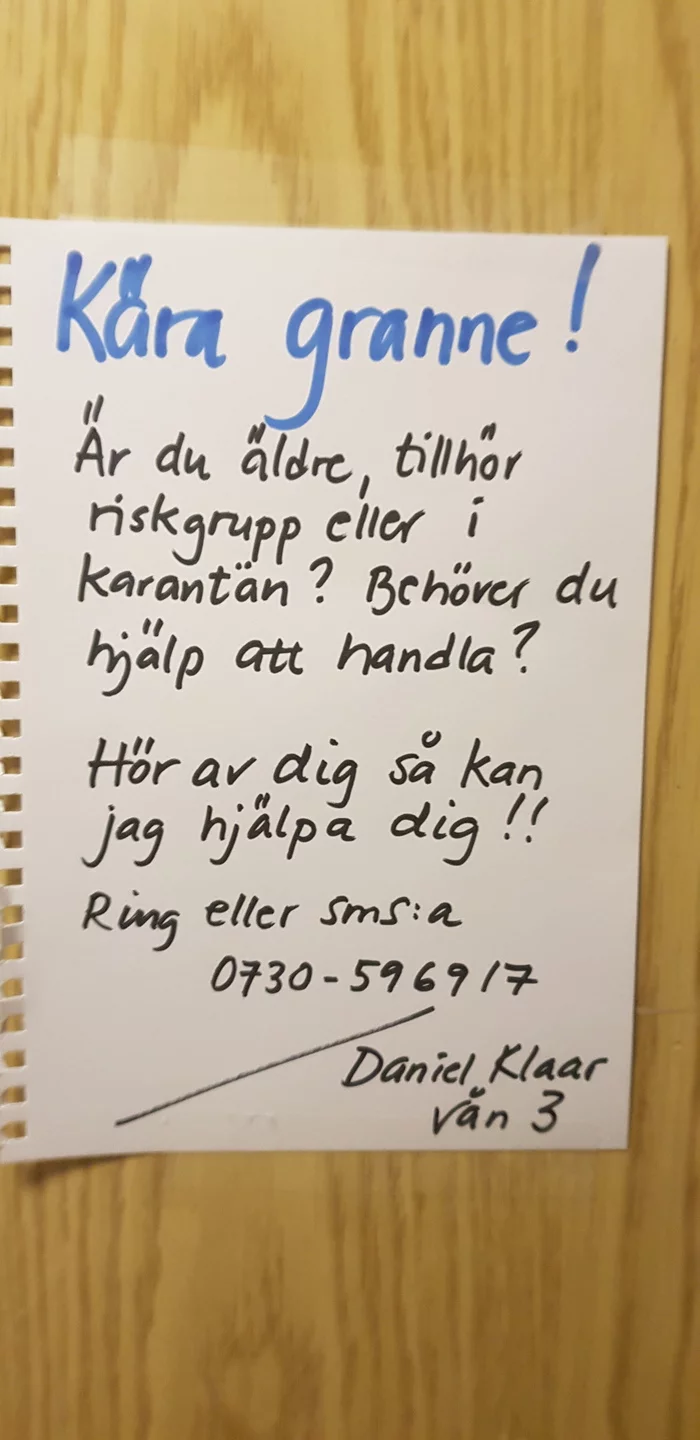 Kära granne!
Är du äldre, tillhör
riskgrupp eller i
karantän? Behöver du
hjälp att handla?
Hör av dig så kan
jag hjälpa dig!!
Ring eller sms:a
0730-596917
Daniel Klaar
vån 3